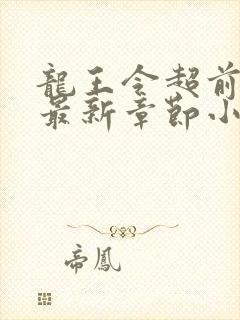 龍王令超前
最新章節小
帝鳳